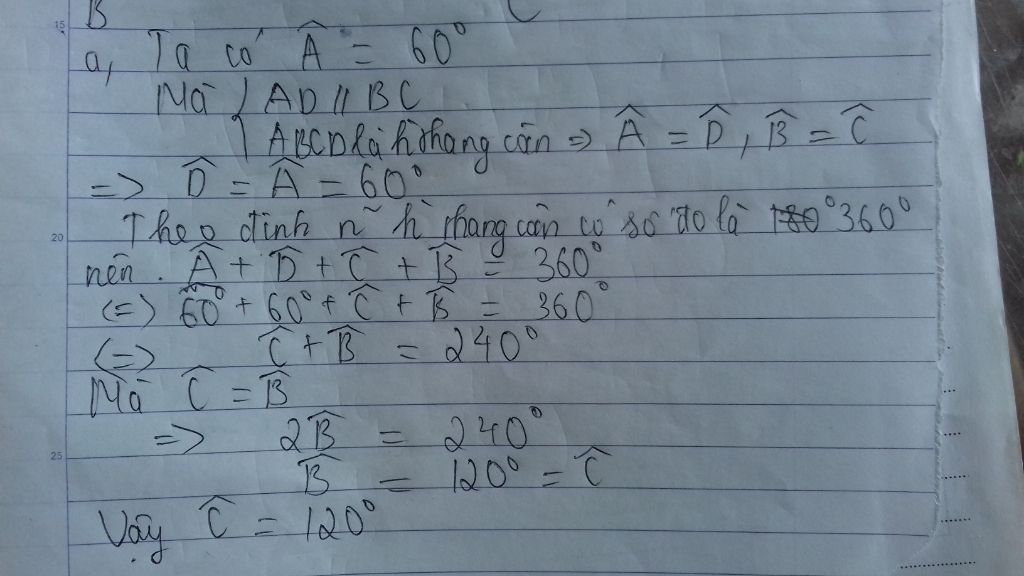 B C
a, Ta có Â = 60°
Mà { AD // BC
ABCD là h thang cân => Â = D̂, B̂ = Ĉ
=> D̂ = Â = 60°
Theo định n~ h thang cân có số đo là 360°
nên. Â + D̂ + Ĉ + B̂ = 360°
(=) 60° + 60° + Ĉ + B̂ = 360°
(=) Ĉ + B̂ = 240°
Mà Ĉ = B̂
=> 2B̂ = 240°
B̂ = 120° = Ĉ
Vậy Ĉ = 120°